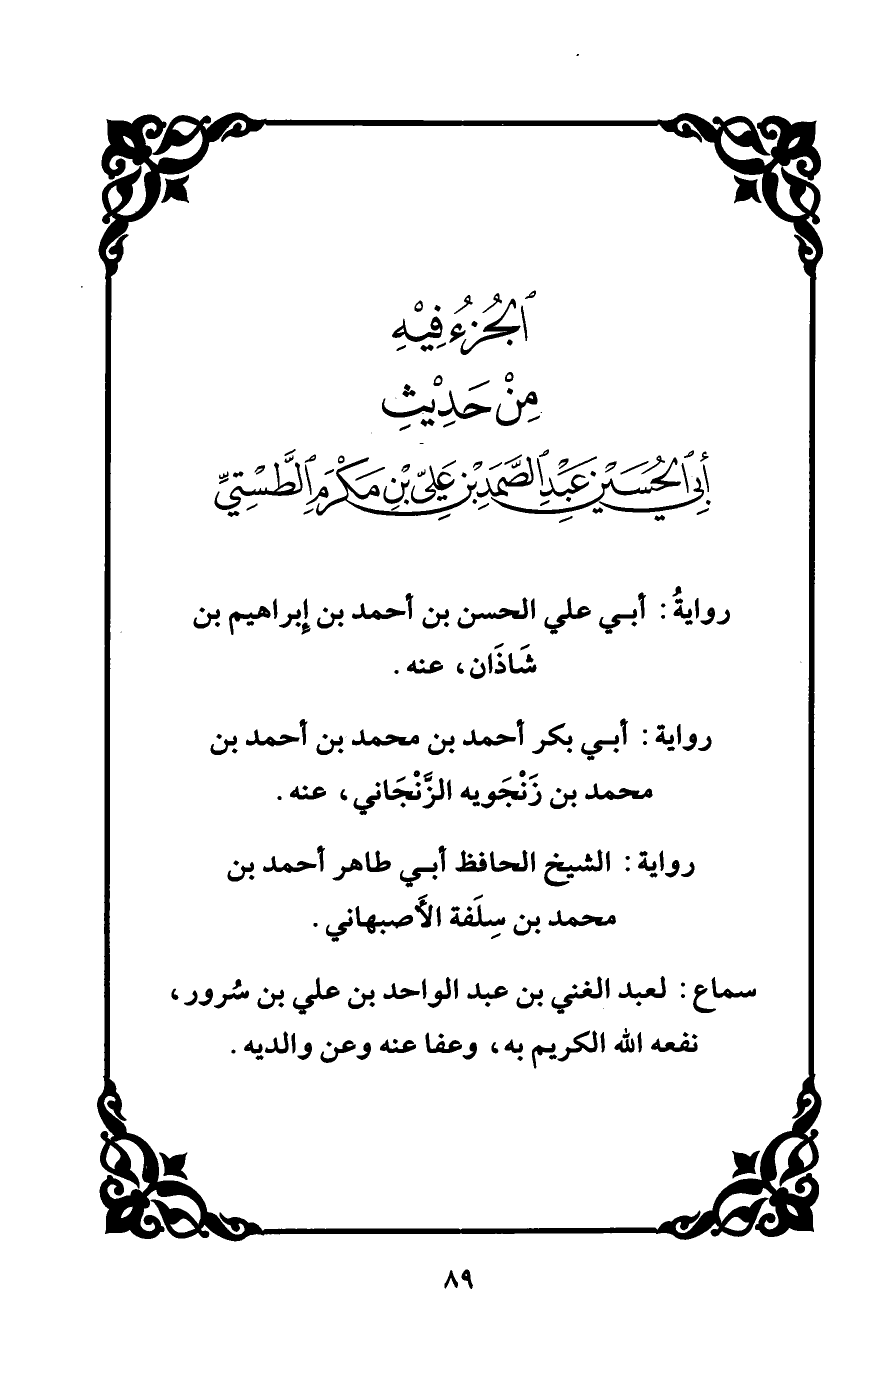 ٱلْجُزْءُ فِيْهِ
مِنْ حَدِيْثِ
أَبِي ٱلْحُسَيْنِ عَبْدِ ٱلصَّمَدِ بْنِ عَلِيِّ بْنِ مَكْرَمِ ٱلطَّسْتِيِّ
روايةُ : أبي علي الحسن بن أحمد بن إبراهيم بن
شَاذَان، عنه .
رواية : أبي بكر أحمد بن محمد بن أحمد بن
محمد بن زَنْجَويه الزَّنْجَاني، عنه .
رواية : الشيخ الحافظ أبي طاهر أحمد بن
محمد بن سِلَفة الأَصبهاني .
سماع : لعبد الغني بن عبد الواحد بن علي بن سُرور،
نفعه الله الكريم به، وعفا عنه وعن والديه .
٨٩